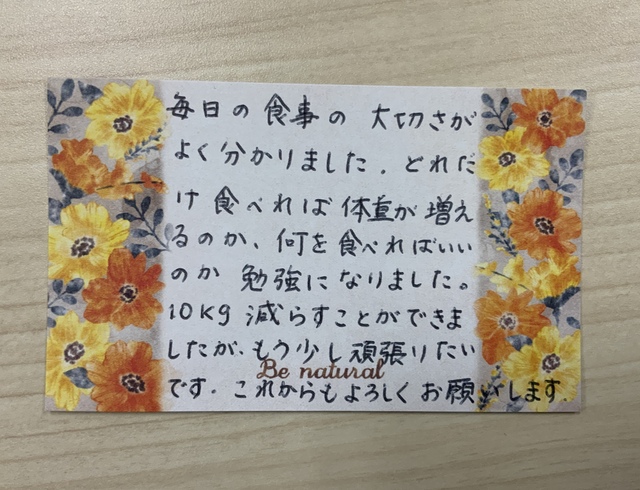 毎日の食事の 大切さが
よく分かりました。どれだ
け食べれば体重が増え
るのか、何を食べればいい
のか 勉強になりました。
10Kg 減らすことができま
したが、もう少し頑張りたい
Be natural
です。これからもよろしくお願いします。